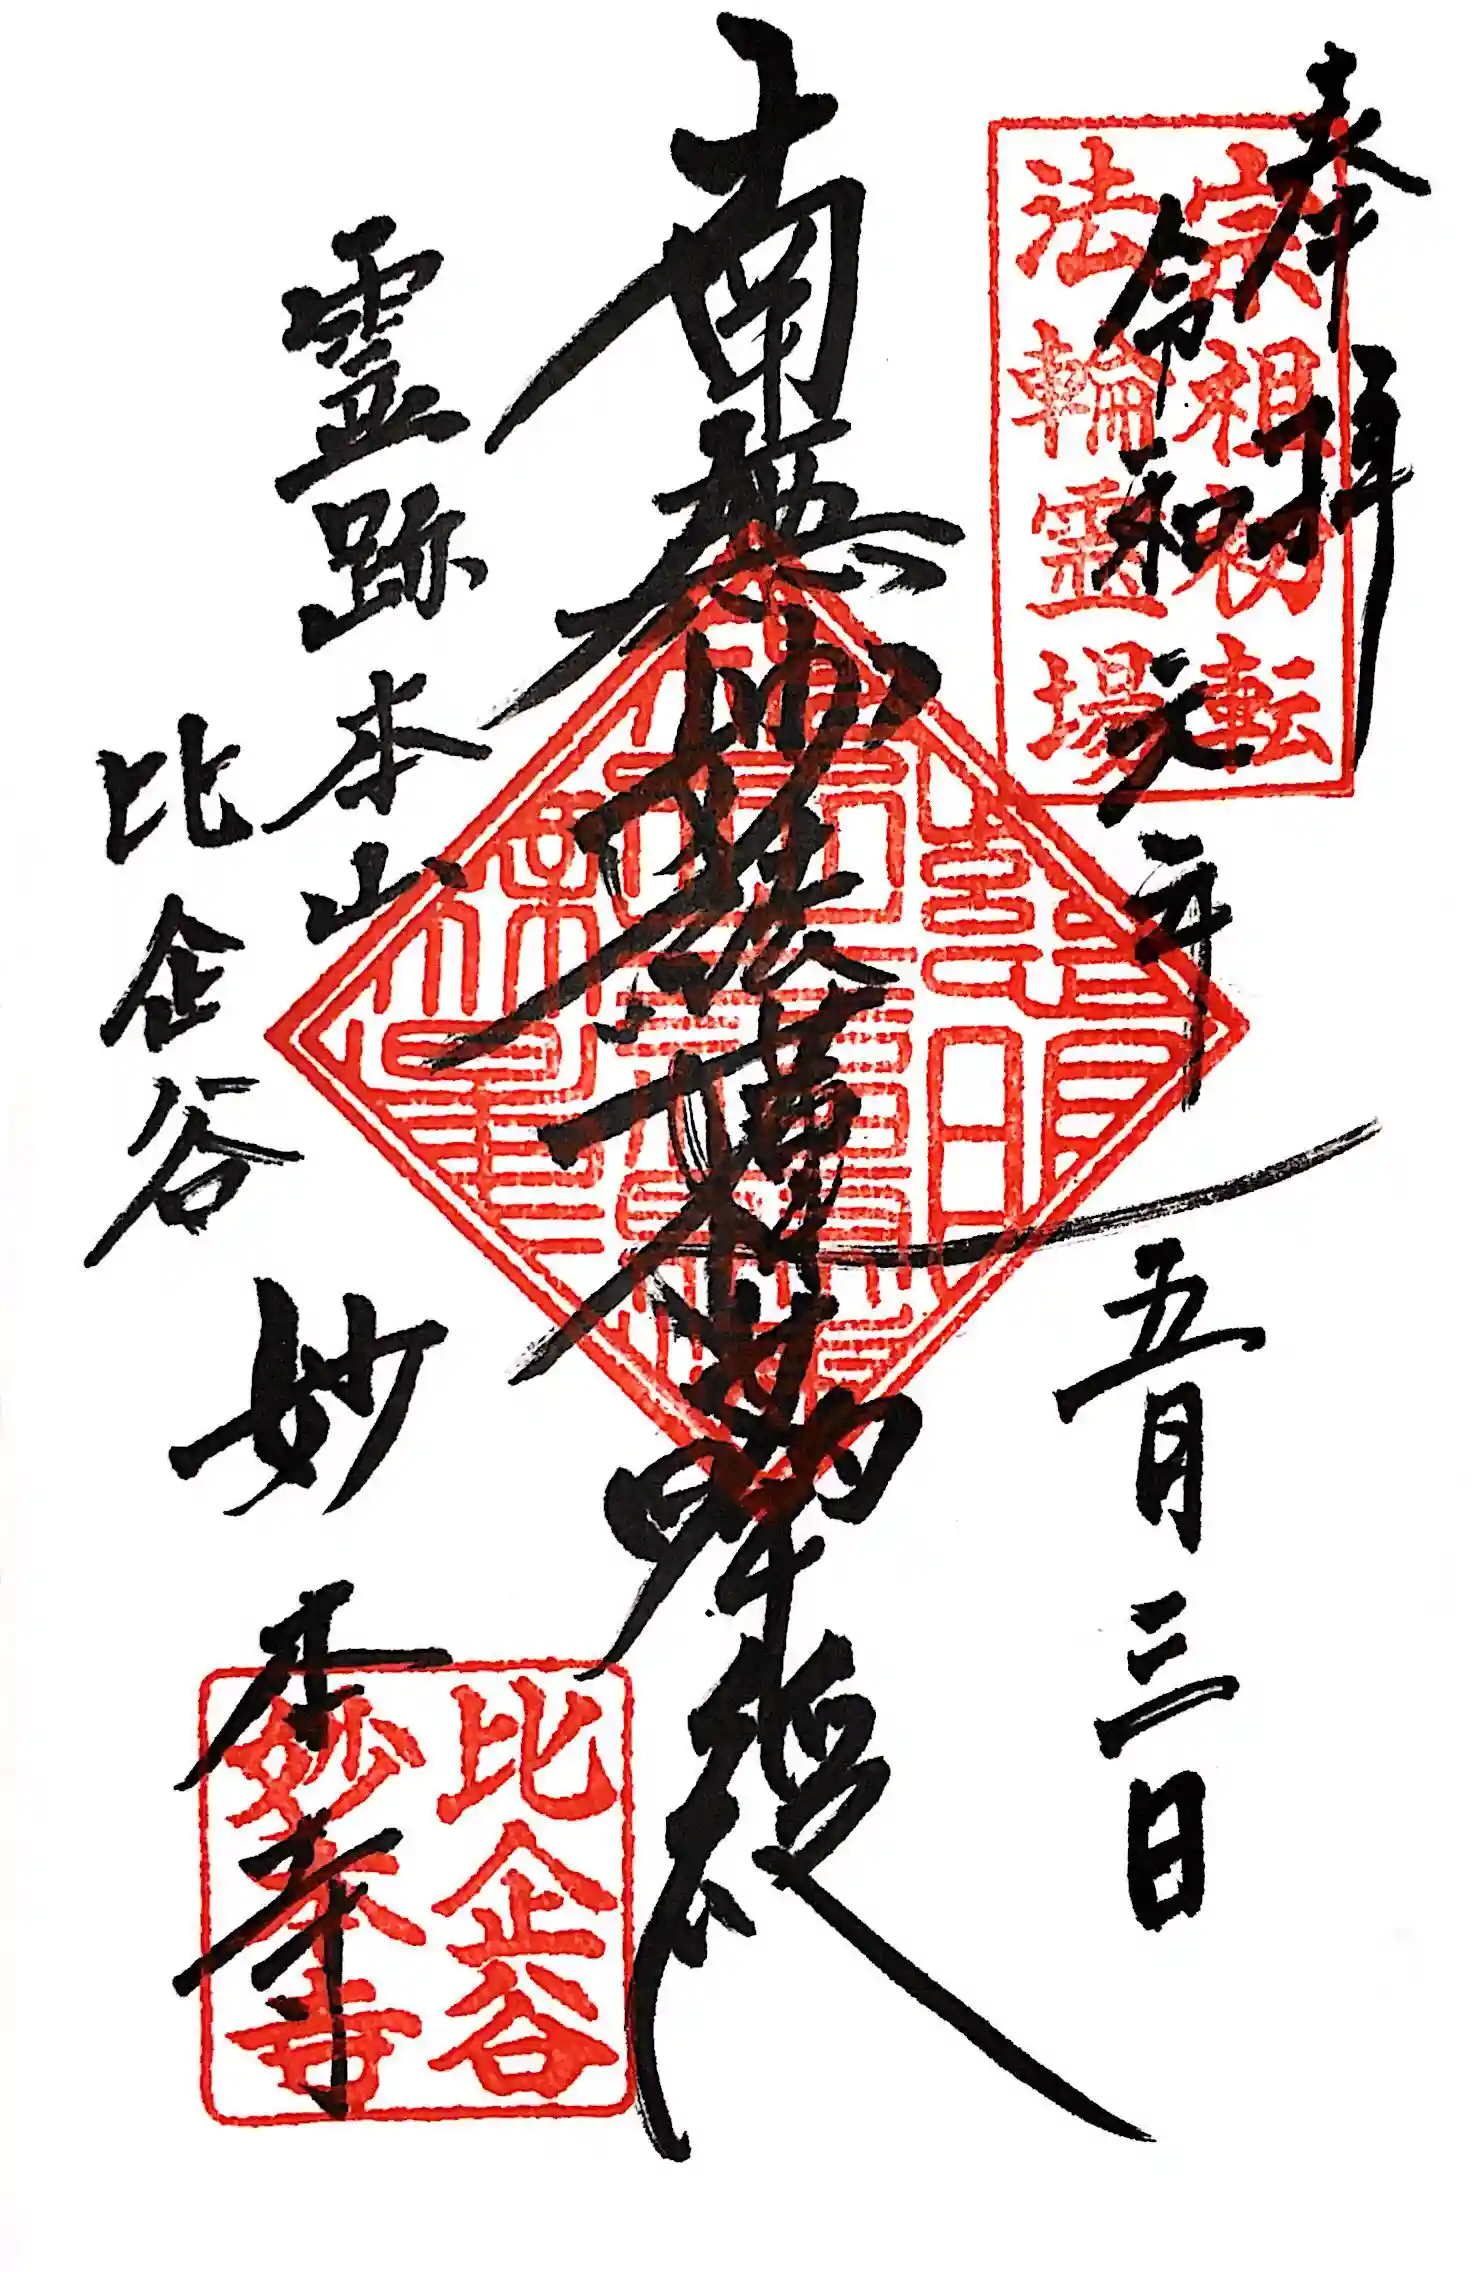 奉拝
令和元年五月三日
宗祖初転
法輪霊場
南無妙法蓮華経
霊跡本山
比企谷
妙本寺
比企谷
妙本寺